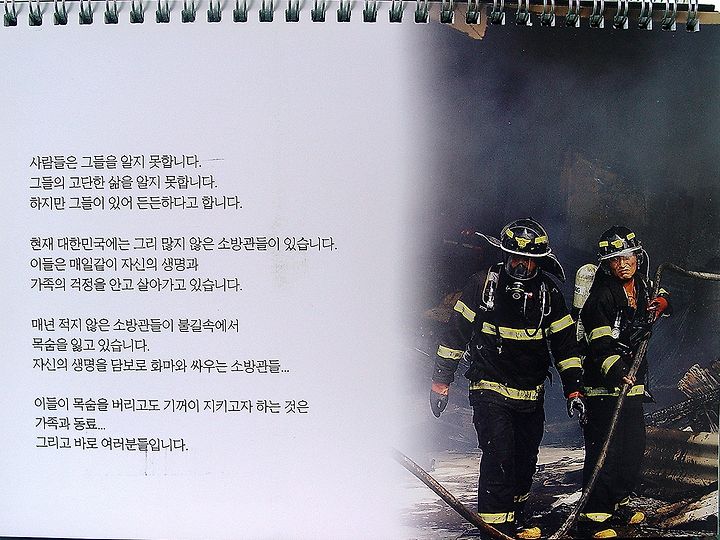 사람들은 그들을 알지 못합니다.
그들의 고단한 삶을 알지 못합니다.
하지만 그들이 있어 든든하다고 합니다.
현재 대한민국에는 그리 많지 않은 소방관들이 있습니다.
이들은 매일같이 자신의 생명과
가족의 걱정을 안고 살아가고 있습니다.
매년 적지 않은 소방관들이 불길속에서
목숨을 잃고 있습니다.
자신의 생명을 담보로 화마와 싸우는 소방관들...
이들이 목숨을 버리고도 기꺼이 지키고자 하는 것은
가족과 동료...
그리고 바로 여러분들입니다.